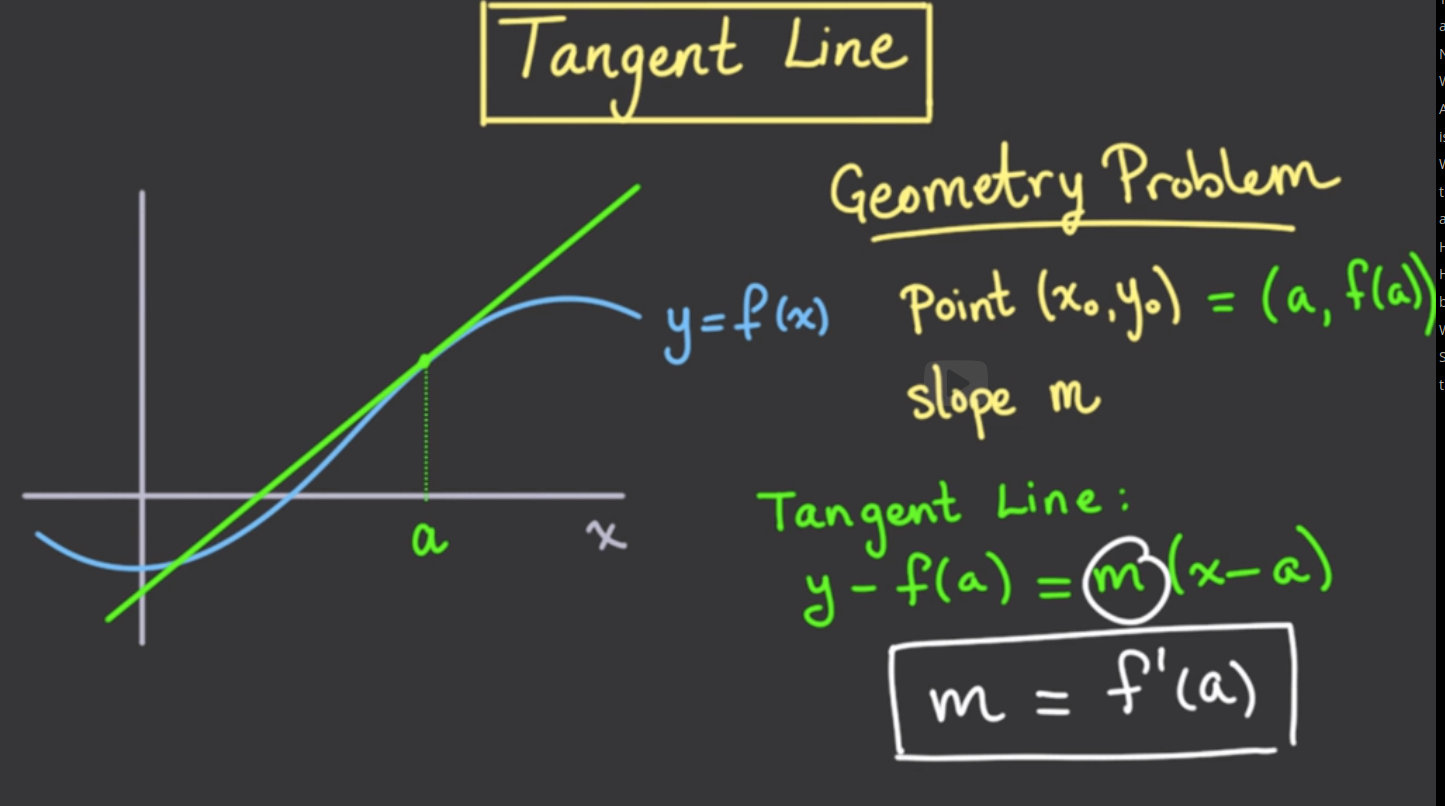 Tangent Line
Geometry Problem
Point (x₀, y₀) = (a, f(a))
y = f(x)
slope m
a
x
Tangent Line:
y - f(a) = m (x - a)
m = f'(a)